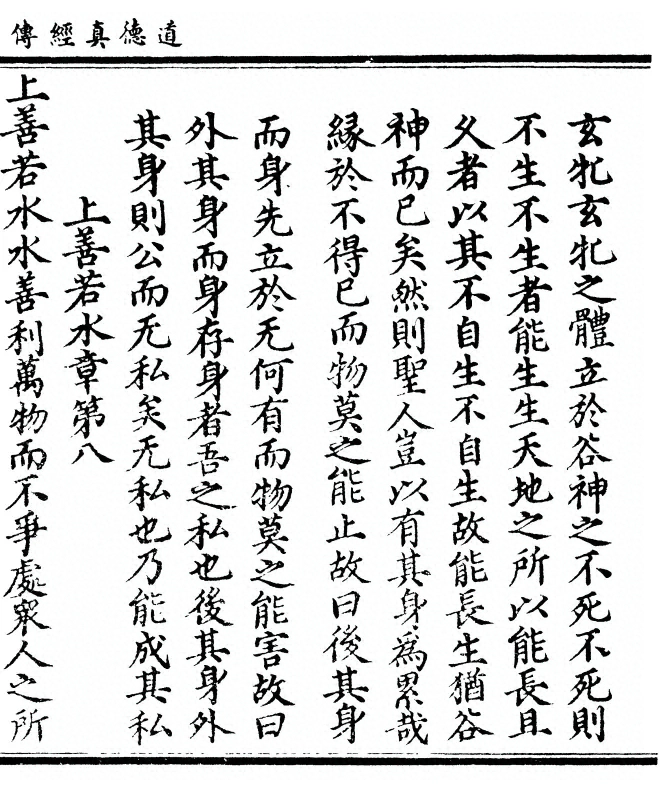 道德真經傳
玄牝玄牝之體立於谷神之不死不死則
不生不生者能生生天地之所以能長且
久者以其不自生不自生故能長生猶谷
神而已矣然則聖人豈以有其身為累哉
緣於不得已而物莫之能止故曰後其身
而身先立於无何有而物莫之能害故曰
外其身而身存身者吾之私也後其身外
其身則公而无私矣无私也乃能成其私
上善若水章第八
上善若水水善利萬物而不爭處眾人之所